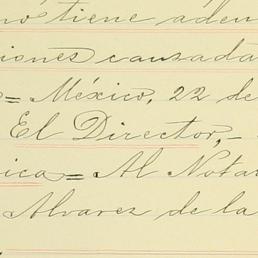 no tiene aden
iones causada
s= México, 22 de
El Director,-
ica= Al Nota
Alvarez de la